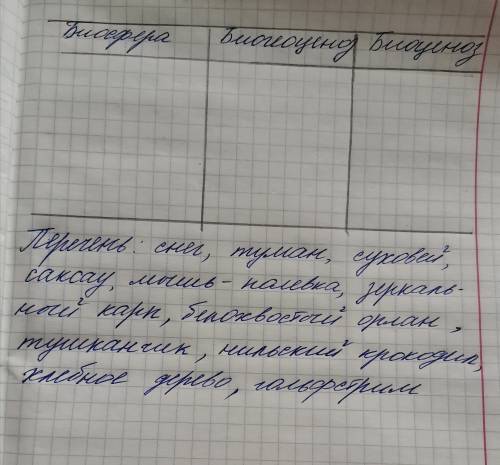 Биосфера Биогеоценоз Биоценоз
Перечень: снег, туман, суховей,
саксау, мышь-полевка, зеркаль-
ный карп, белохвостый орлан,
тушканчик, нильский крокодил,
хлебное дерево, гольфстрим